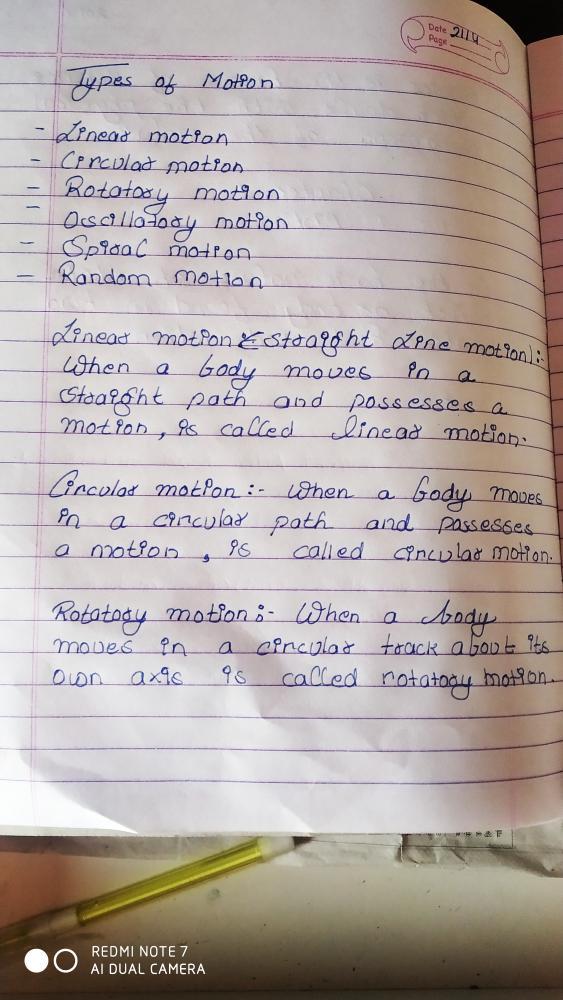 Date 21/4
Page
Types of Motion
- Linear motion
- Circular motion
- Rotatory motion
- Oscillatory motion
- Spiral motion
- Random motion
Linear motion (straight Line motion):-
When a body moves in a
straight path and possesses a
motion, is called linear motion.
Circular motion :- When a body moves
in a circular path and possesses
a motion, is called circular motion.
Rotatory motion :- When a body
moves in a circular track about its
own axis is called rotatory motion.
REDMI NOTE 7
AI DUAL CAMERA